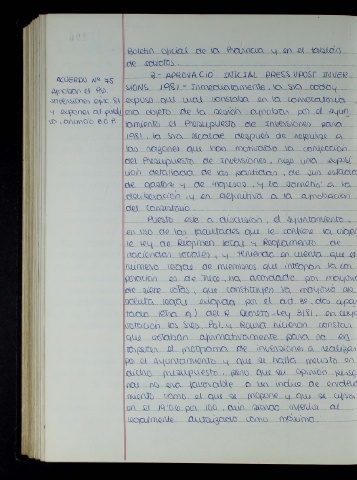 Boletín oficial de la Provincia y en el tablón
de edictos.
ACUERDO Nº 75
Aprobar el Pto.
inversiones ejerc. 81
y exponer al públi
co, anuncio B.O.P.
2.- APROVACIO INICIAL PRESSUPOST INVER-
SIONS 1981.- Inmediatamente, la Sra. Alcalde
expuso que según constaba en la convocatoria
era objeto de la sesión aprobar por el Ayun-
tamiento el Presupuesto de Inversiones para
1981. La Sra. Alcalde después de referirse a
las razones que han motivado la confección
del Presupuesto de Inversiones, hizo una exposi-
ción detallada de las partidas, de sus estados
de gastos y de ingresos, y lo sometió a la
deliberación y en definitiva a la aprobación
del Consistorio.
Puesto ello a discusión, el Ayuntamiento,
en uso de las facultades que le confiere la vigen-
te ley de Régimen Local y Reglamento de
Haciendas locales, y teniendo en cuenta que el
número legal de miembros que integran la cor-
poración es de trece, ha acordado por mayoría
de siete votos, que constituyen la mayoría ab-
soluta legal exigida por el art. 3º, dos apar-
tado del R. Decreto-Ley 3/81, en cuya
votación los Sres. Pol y Rovira hicieron constar
que votaban afirmativamente para no en-
torpecer el programa de inversiones a realizar
por el Ayuntamiento y que se halla previsto en
dicho presupuesto, pero que su opinión perso-
nal no era favorable a un índice de endeuda-
miento como el que se propone y que se cifra
en el por 100, aún siendo inferior al
legalmente autorizado como máximo.